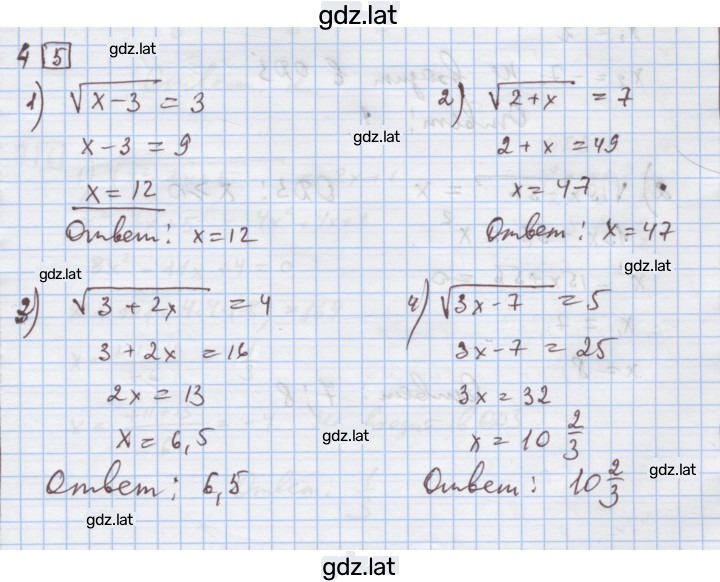 gdz.lat
4 5
gdz.lat
1) √(x-3) = 3
x-3 = 9
x = 12
Ответ: x=12
2) √(2+x) = 7
gdz.lat
2+x = 49
x = 47
Ответ: x=47
gdz.lat
gdz.lat
3) √(3+2x) = 4
3+2x = 16
2x = 13
x = 6,5
Ответ: 6,5
4) √(3x-7) = 5
3x-7 = 25
3x = 32
x = 10 2/3
gdz.lat
Ответ: 10 2/3
gdz.lat
gdz.lat
gdz.lat